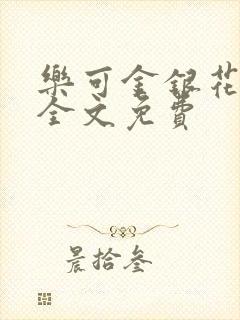 樂可金銀花
全文免費
晨拾叁